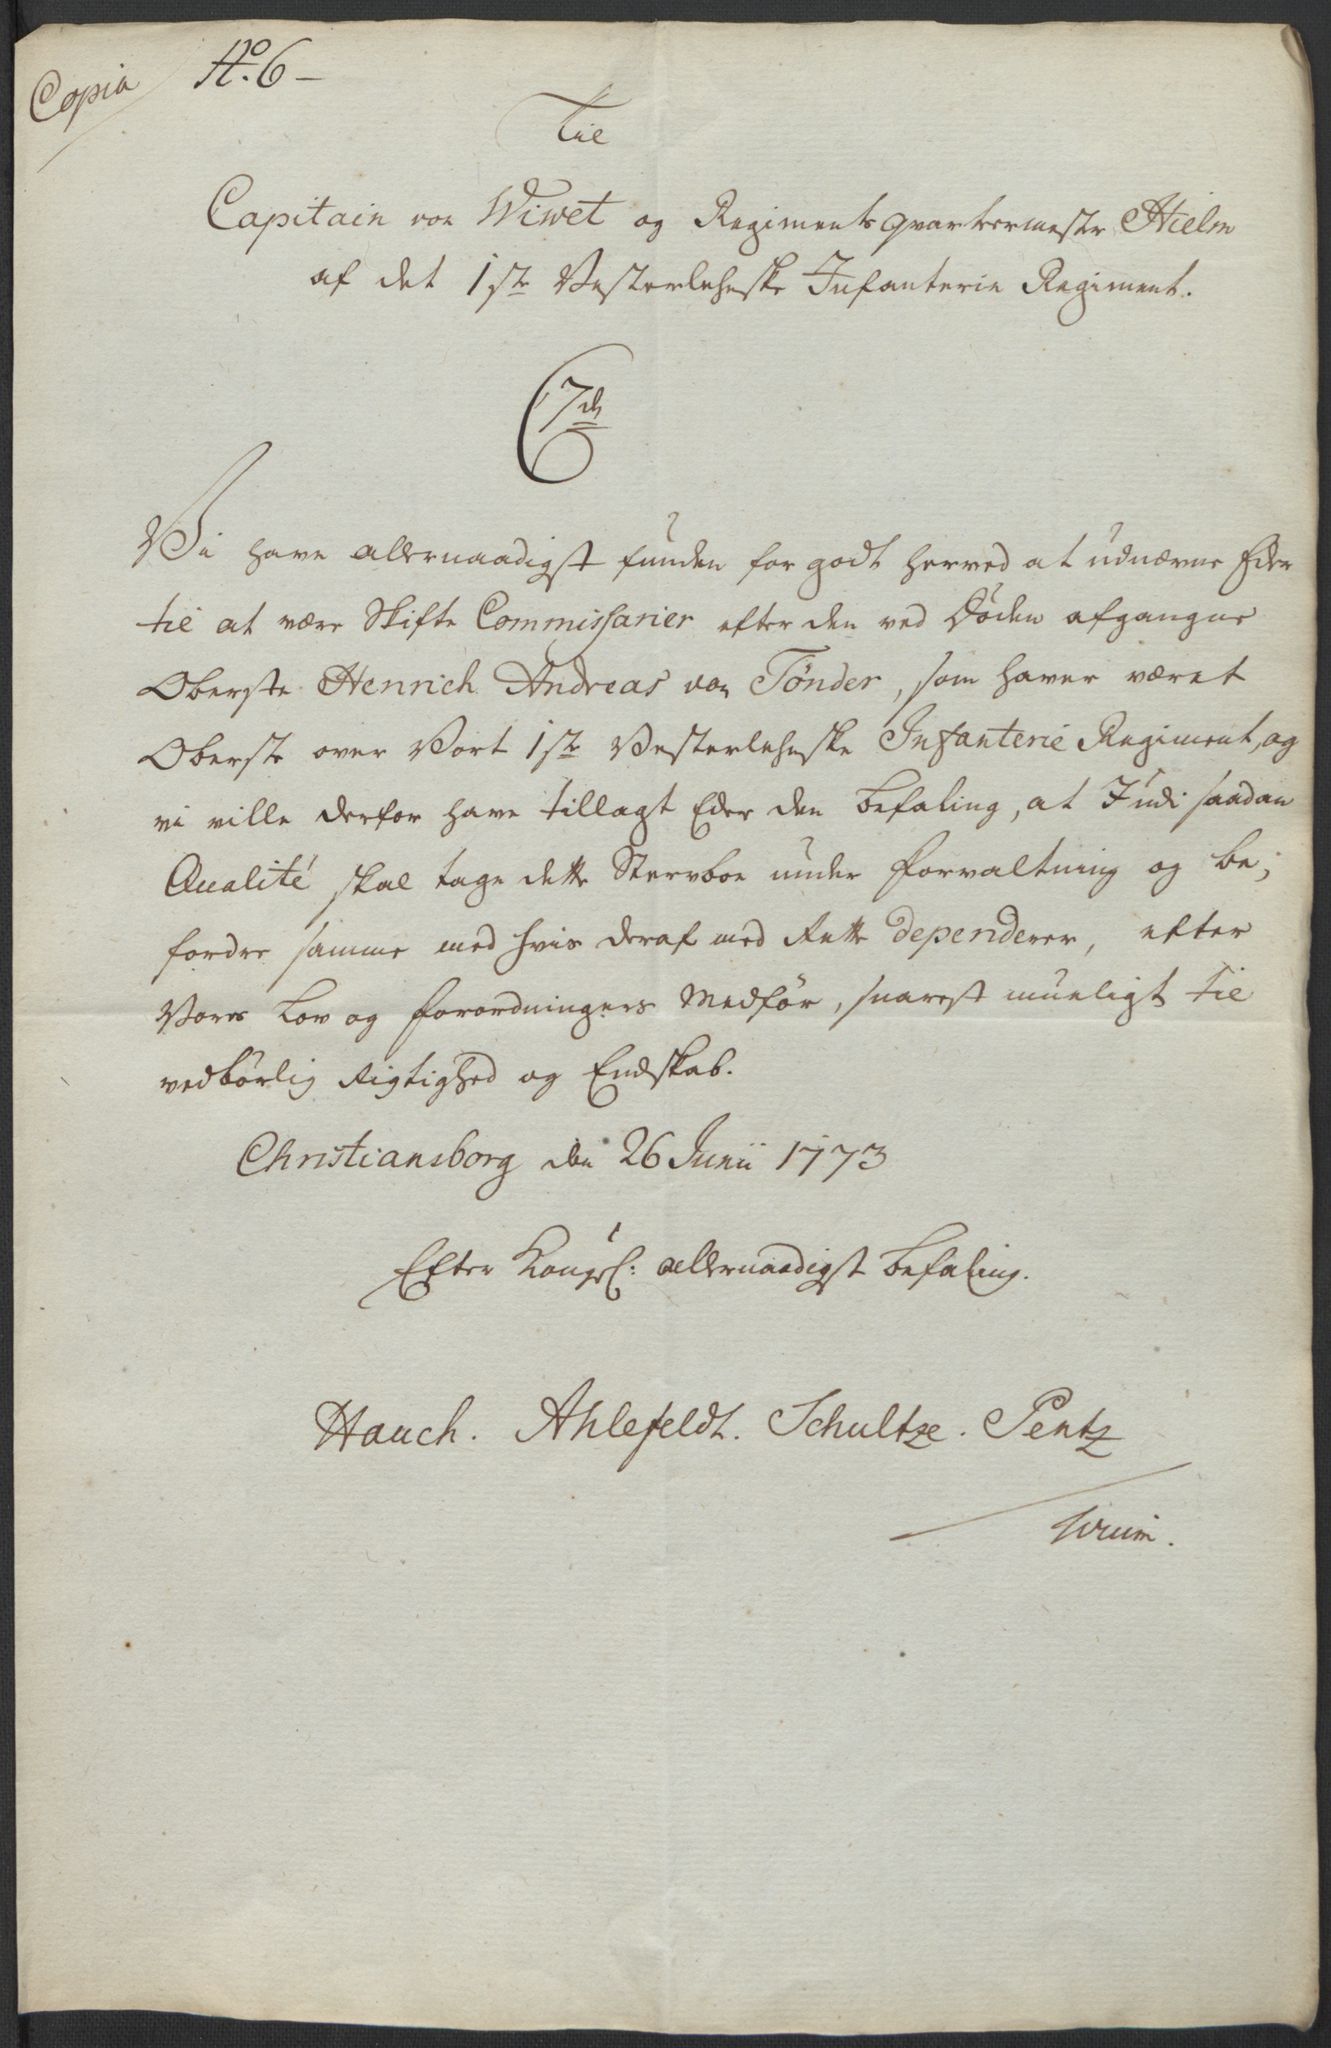 Copia
No. 6 –
Til
Capitain von Wiwet og Regimentsqvarteermester Hielm
af det 1ste Vesterlehnske Infanterie Regiment.
C 7de
Vi have allernaadigst funden for godt herved at udnævne Eder
til at være Skifte Commissarier efter den ved Døden afgangne
Oberste Henrich Andreas von Tönder, som haver været
Oberste over Vort 1ste Vesterlehnske Infanterie Regiment, og
vi ville derfor have tillagt Eder den befaling, at I udi saadan
Qualité skal tage dette Stervboe under forvaltning og be-
fordre samme med hvis deraf med Rette dependerer, efter
Vores Lov og forordningers Medför, snarest mueligt til
vedbörlig Rigtighed og Endskab.
Christiansborg den 26 Junii 1773
Efter Kongel: allernaadigst befaling.
Hauch. Ahlefeldt. Schultze. Pentz